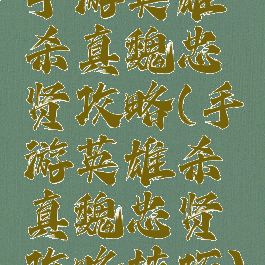 手游英雄
杀真魏忠
贤攻略(手
游英雄杀
真魏忠贤
攻略技巧)